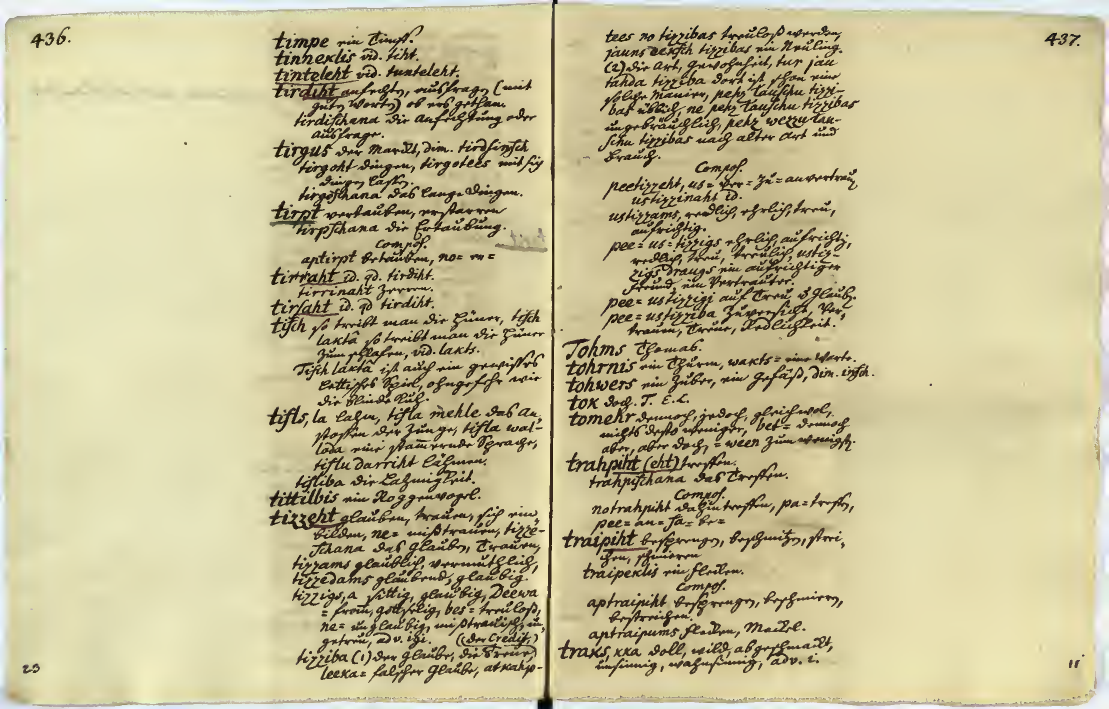 436.
timpe ein Timpf.
tinneklis vid. tiht.
tinteleht vid. tunteleht.
tirdiht ausfragen (mit
guten Worten) ob ers gethan
tirdischana die Ausfrage.
tirgus der Marckt, dim. tirdsinsch
tirgoht dingen, tirgotees mit sich
dingen lassen
tirgoschana das lange dingen.
tirpt vertauben, erstarren
tirpschana die Ertaubung.
Compos.
aptirpt betäuben, no= er=
tirraht id. qd. tirdiht.
tirrinaht zerren.
tirsaht id. qd tirdiht.
tisch so treibt man die Hüner, tisch
laktâ so treibt man die Hüner
zum schlafen, vid. lakts.
Tisch laktâ ist auch ein gewisses
lettisches Spiel, ohngefehr wie
die blinde Kuh.
tisls, la lahm, tisla mehle das an
stossen der Zunge, tisla wal-
loda eine stammernde Sprache,
tislu darriht lähmen.
tisliba die Lahmigkeit.
tittilbis ein Roggenvogel.
tizzeht glauben, trauen, sich ein
bilden, ne= mißtrauen, tizze-
schana das glauben, trauen,
tizzams glaublich, vermuthlich,
tizzedams glaubend, glaubig.
tizzigs, a sittig, glaubig, Deewa
= from, gottselig, bes= treuloß,
ne= unglaubig, mißtrauisch, un
getreu, adv. igi. (der Credit,)
tizziba (1) der Glaube, die Treue
leeka= falscher Glaube, atkahp-
23
437.
tees no tizzibas treuloß werden,
jauns eeksch tizzibas ein Neuling.
(2) die Art, gewohnheit, tur jau
tahda tizziba dort ist schon eine
solche Manier, pehz lauschu tizzi-
bas üblich, ne pehz lauschu tizzibas
ungebräuchlich, pehz wezzu lau-
schu tizzibas nach alter Art und
brauch.
Compos.
peetizzeht, us= ver= zu= anvertrauen
ustizzinaht id.
ustizzams, redlich, ehrlich, treu,
aufrichtig.
pee= us= tizzigs ehrlich, aufrichtig,
redlich, treu, treulich, ustiz-
zigs draugs ein aufrichtiger
Freund, ein Vertrauter.
pee= ustizzigi auf Treu u Glaub.
pee= ustizziba Zuversicht, Ver-
trauen, Treue, Redlichkeit.
Tohms Thomas.
tohrnis ein Thurm, wakts= eine Warte.
tohwers ein Zuber, ein Gefäß, dim. insch.
tok doch. T. E. L.
tomehr dennoch, jedoch, gleichwol,
nichts desto weniger, bet= dennoch
aber, aber doch, = ween zum wenigsten.
trahpiht (eht) treffen.
trahpischana das Treffen.
Compos.
notrahpiht dahintreffen, pa= treffen,
pee= an= sa= be=
traipiht besprengen, beschmitzen, strei-
chen, schmieren
traipeklis ein Flecken.
Compos.
aptraipiht besprengen, beschmieren,
bestreichen.
aptraipums Flecken, Mackel.
traks, kka doll, wild, abgeschmackt,
unsinnig, wahnsinnig, adv. i.
11